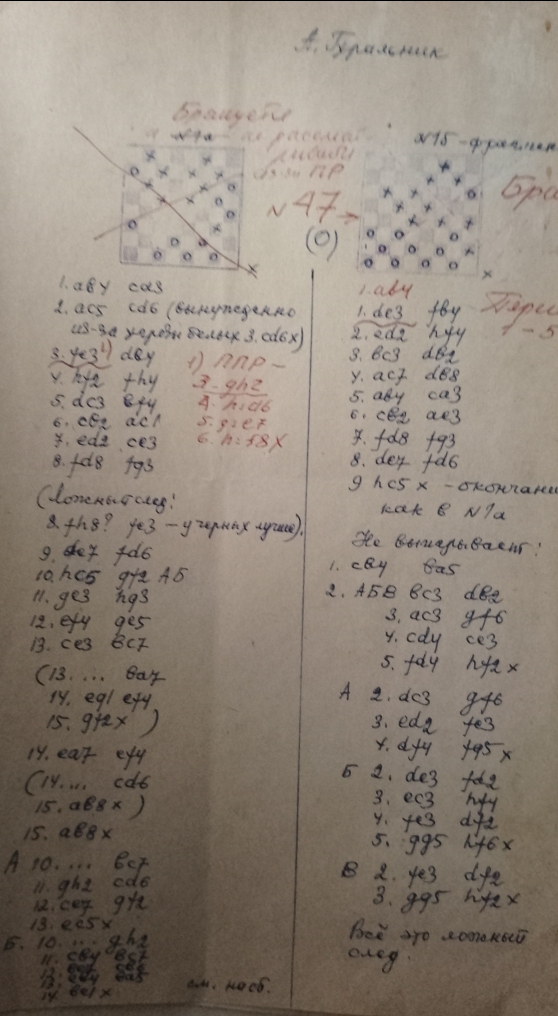 А. Гуральник
Бракуется
№1а
из-за ПР
№47
(О)
1. ab4 cd3
2. ac5 cd6 (вынужденно
из-за угрозы белых 3. cd6x)
3. fe3 1) db4
4. hf2 fh4
5. dc3 ef4
6. cb2 ac1
7. ed2 ce3
8. fd8 fg3
1) ППР -
3. gh2
4. h:d6
5. g:e7
6. h:f8X
(Ложный след:
8. fh8? fe3 — у черных лучше).
9. de7 fd6
10. hc5 gf2 АБ
11. ge3 hg3
12. ef4 ge5
13. ce3 bc7
(13. ... ba7
14. eg1 ef4
15. gf2x)
14. ea7 ef4
(14. ... cd6
15. ab8x)
15. ab8x
А 10. ... bc7
11. gh2 cd6
12. ce7 gf2
13. ec5x
Б. 10. ... gh2
11. cb4 bc7
14. bc1x
см. на об.
№1б - фрагмен
1. ab4
1. de3 fb4
2. ed2 hf4
3. bc3 db2
4. ac7 db8
5. ab4 ca3
6. cb2 ae3
7. fd8 fg3
8. de7 fd6
9 hc5x - окончани
как в №1а
Не выигрывает:
1. cb4 ba5
2. АБВ bc3 db2
3. ac3 gf6
4. cd4 ce3
5. fd4 hf2x
А 2. dc3 gf6
3. ed2 fe3
4. df4 fg5x
Б 2. de3 fd2
3. ec3 hf4
4. fe3 df2
5. gg5 hf6x
В 2. fe3 df2
3. gg5 hf2x
Всё это ложный
след.